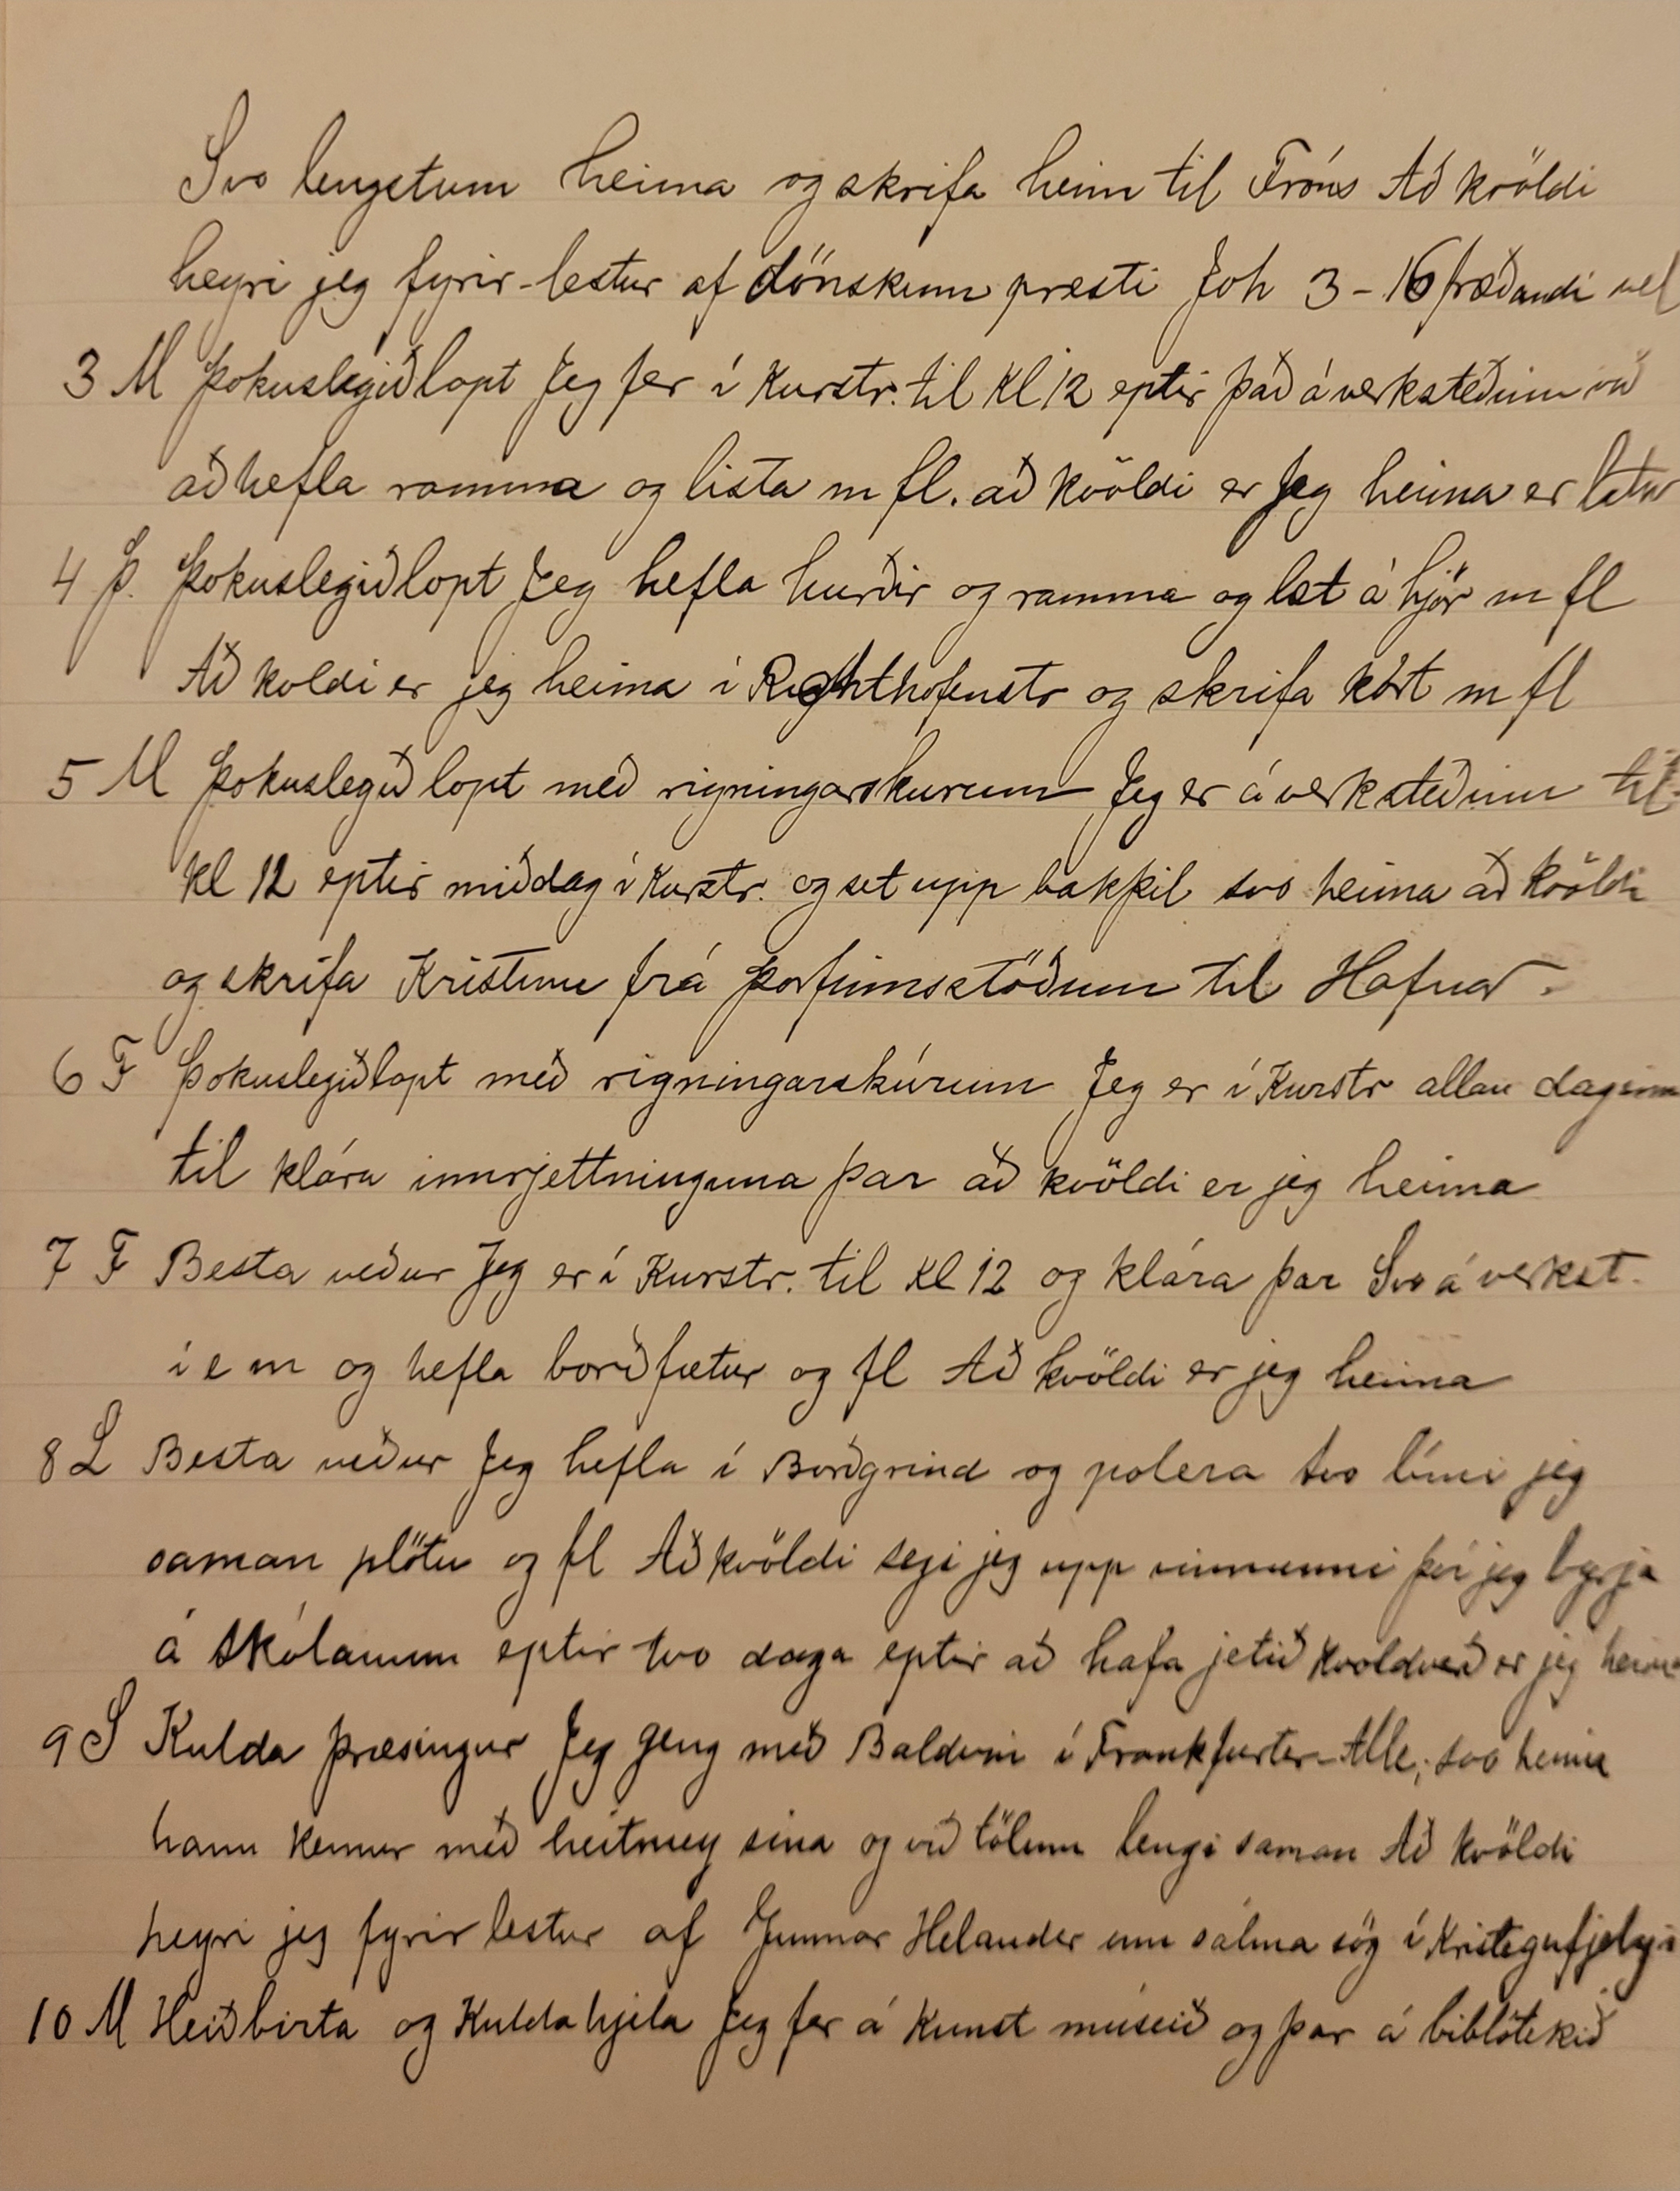 Svo lengstum heima og skrifa heim til Fróns Að kvöldi
heyri jeg fyrir-lestur af dönskum presti Joh 3-16 fræðandi vel
3 M Þokuslegið lopt Jeg fer í Kurstr. til kl 12 eptir það á verksteðinu við
að hefla ramma og lista m fl. að kvöldi er Jeg heima er
4 Þ. Þokuslegið lopt Jeg hefla hurðir og ramma og læt á hjör m fl
Að koldi er jeg heima í og skrifa kort m fl
5 M Þokuslegið lopt með rigningarskurum Jeg er á verksteðinu til
kl 12 eptir middag í Kurstr. og set upp bakþil svo heima að kvöldi
og skrifa Kristinu frá Þorfinnsstöðum til Hafnar.
6 F Þokuslegið lopt með rigningarskúrum Jeg er í Kurstr allan daginn
til klára innrjettninguna þar að kvöldi er jeg heima
7 F Besta veður Jeg er í Kurstr. til kl 12 og klára þar Svo á verkst.
í e m og hefla borðfætur og fl Að kvöldi er jeg heima
8 L Besta veður Jeg hefla í Borðgrind og polera svo lími jeg
saman plötu og fl Að kvöldi segi jeg upp vinnunni því jeg byrja
á skólanum eptir tvo daga eptir að hafa jetið kvoldverð er jeg heima
9 S Kulda þræsingur Jeg geng með Baldvin í Frankfurter-Alle, svo heima
hann kemur með heitmey sína og við tölum lengi saman Að kvöldi
heyri jeg fyrirlestur af Gunnar Helander um sálma sög í
10 M Heiðbirta og Kulda hjela Jeg fer á Kunst múseið og þar á biblótekið